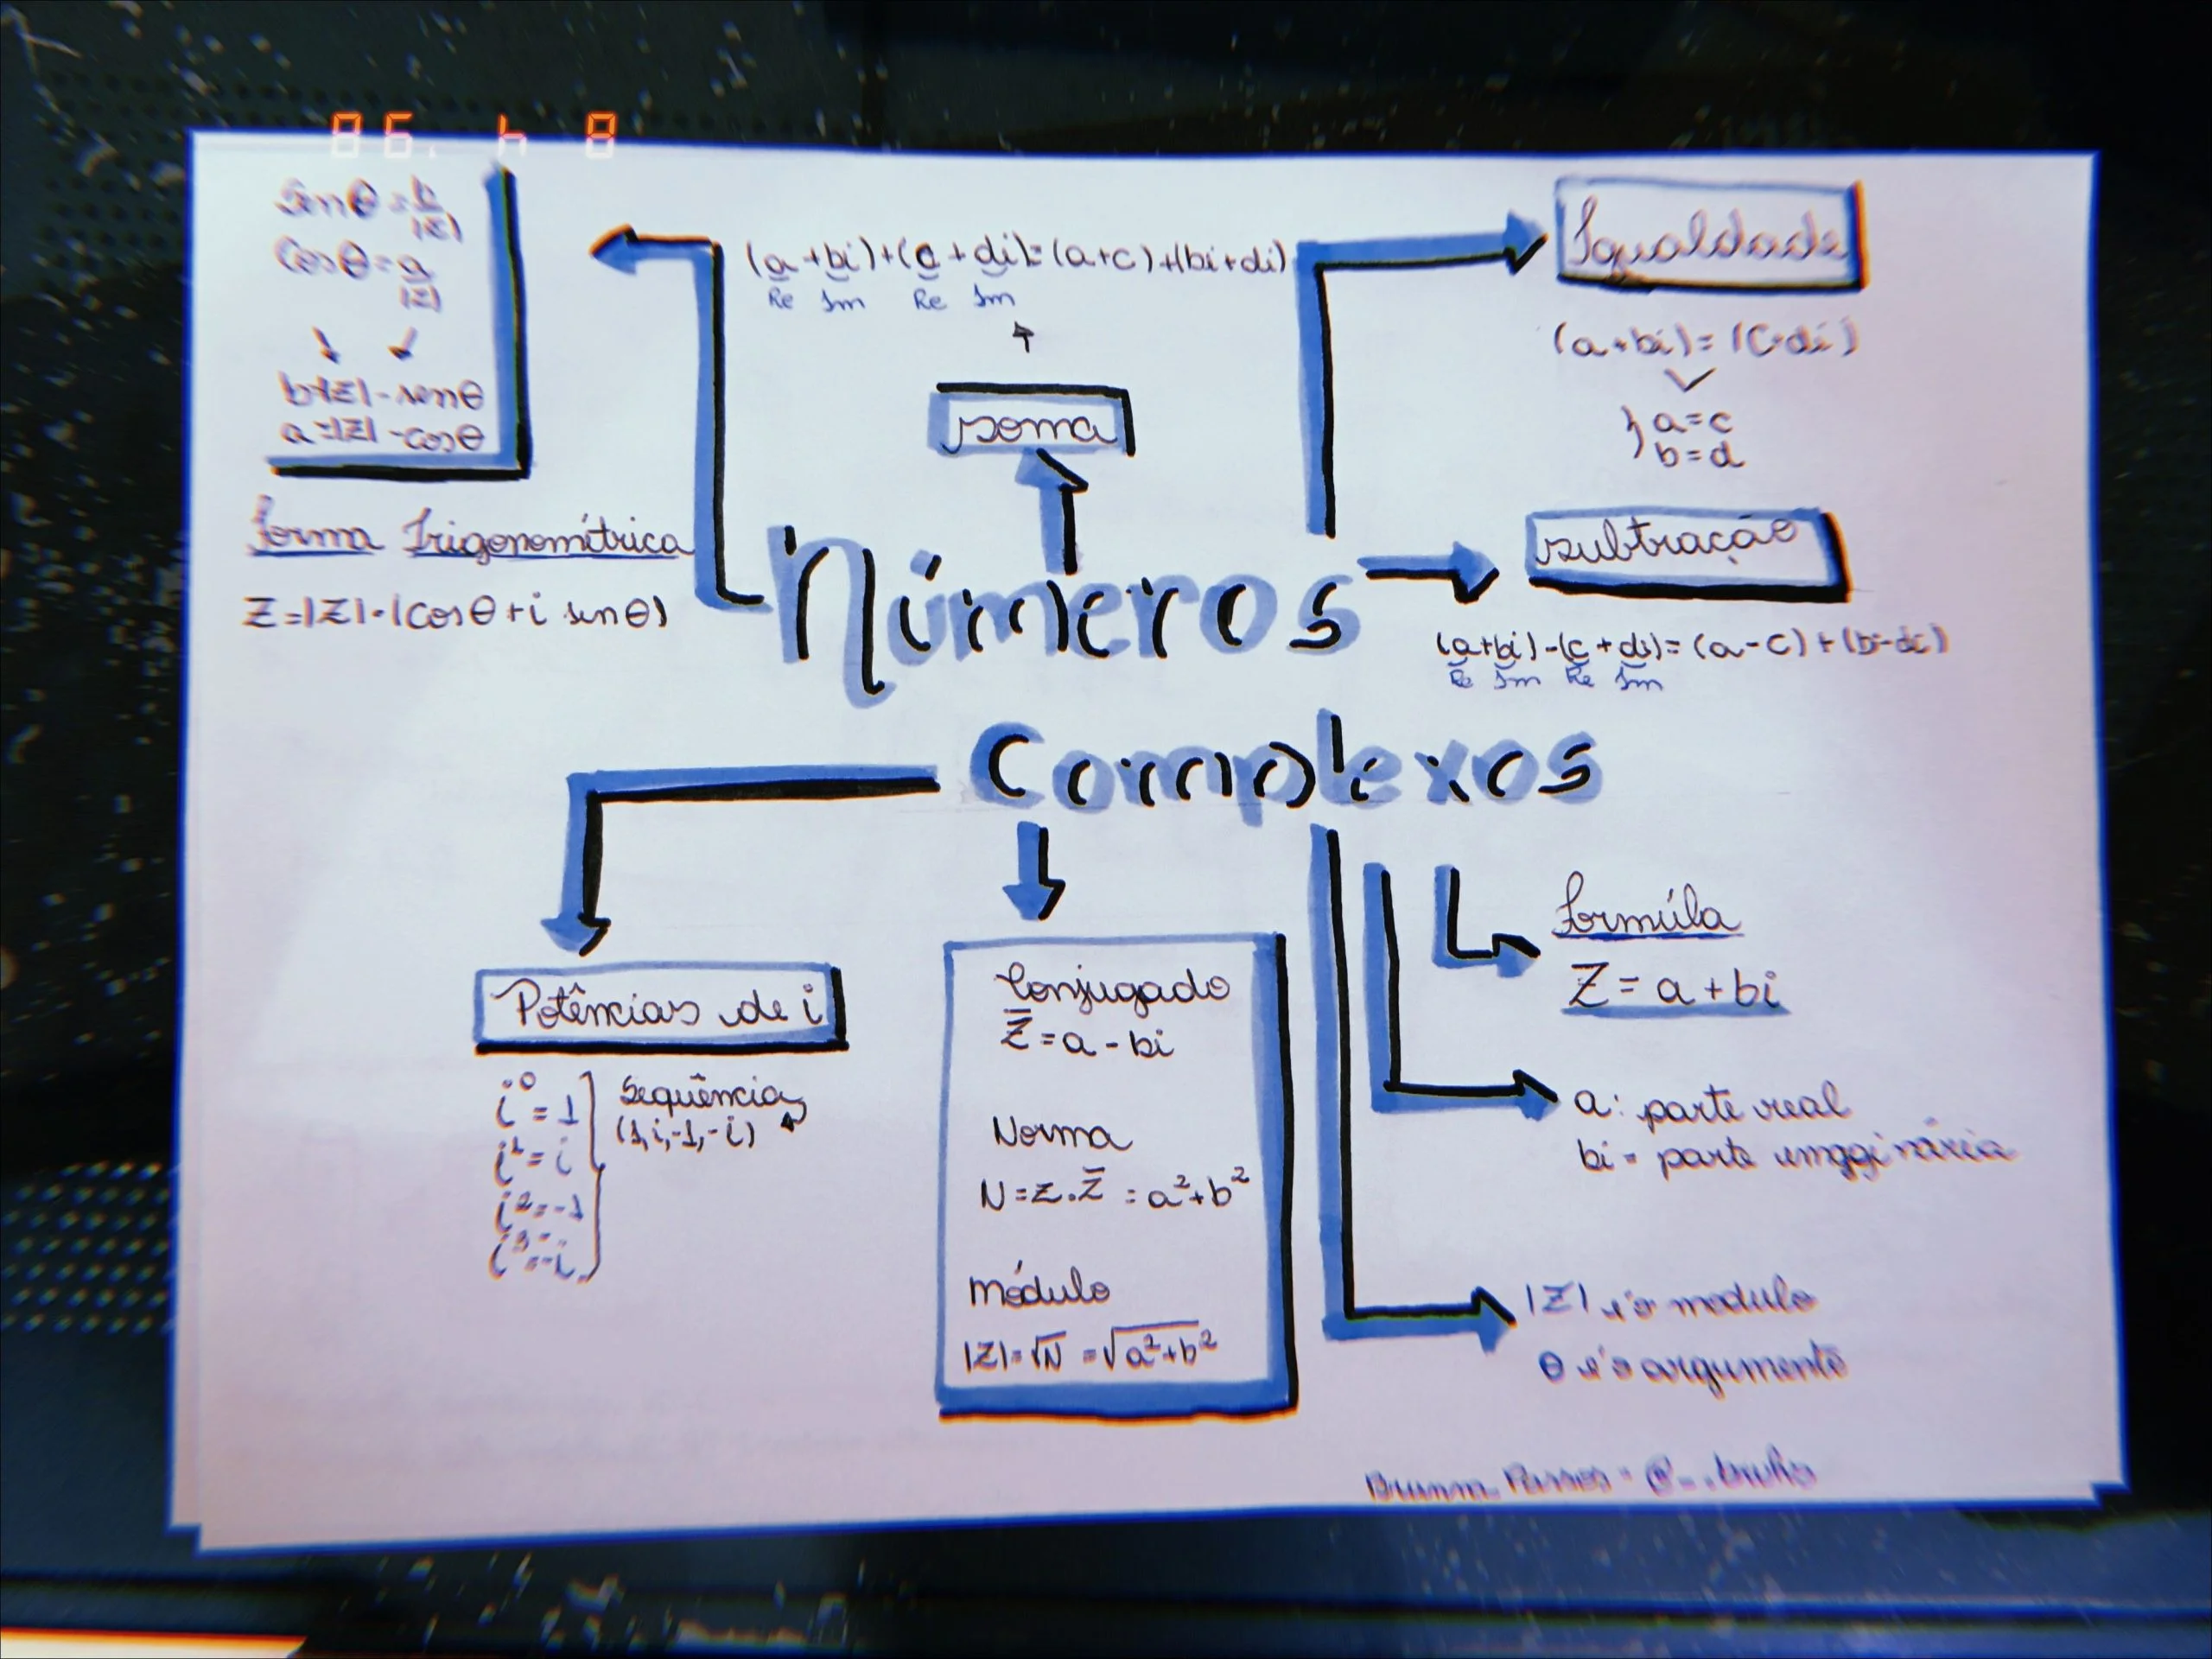 86. 4 8
senθ = b
|Z|
Cosθ = a
|Z|
b=|Z| - senθ
a=|Z| - cosθ
Forma Trigonométrica
Z=|Z|•(Cosθ+i senθ)
(a+bi)+(c+di)=(a+c)+(bi+di)
Re Im Re Im
soma
Igualdade
(a+bi)=(C+di)
} a=c
b=d
subtração
(a+bi)-(c+di)=(a-c)+(bi-di)
Re Im Re Im
Números
Complexos
Potências de i
i⁰=1
i¹=i
i²=-1
i³=-i
Sequência
(1,i,-1,-i)
Conjugado
Z̄=a-bi
Norma
N=z.z̄=a²+b²
Módulo
|Z|=√N=√a²+b²
formúla
Z=a+bi
a: parte real
bi= parte
|Z| é o modulo
θ é o argumento